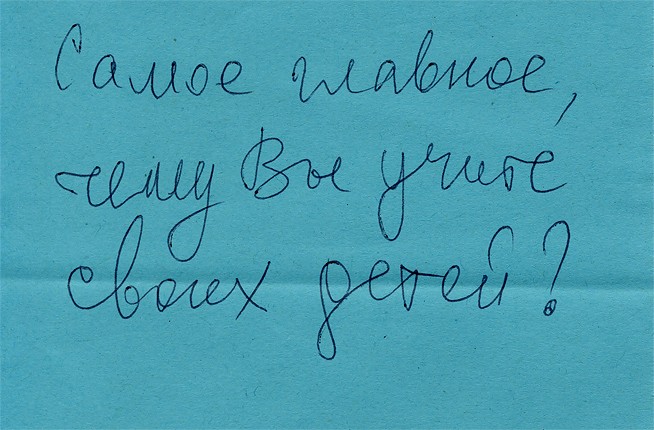 Самое главное,
чему Вы учите
своих детей?